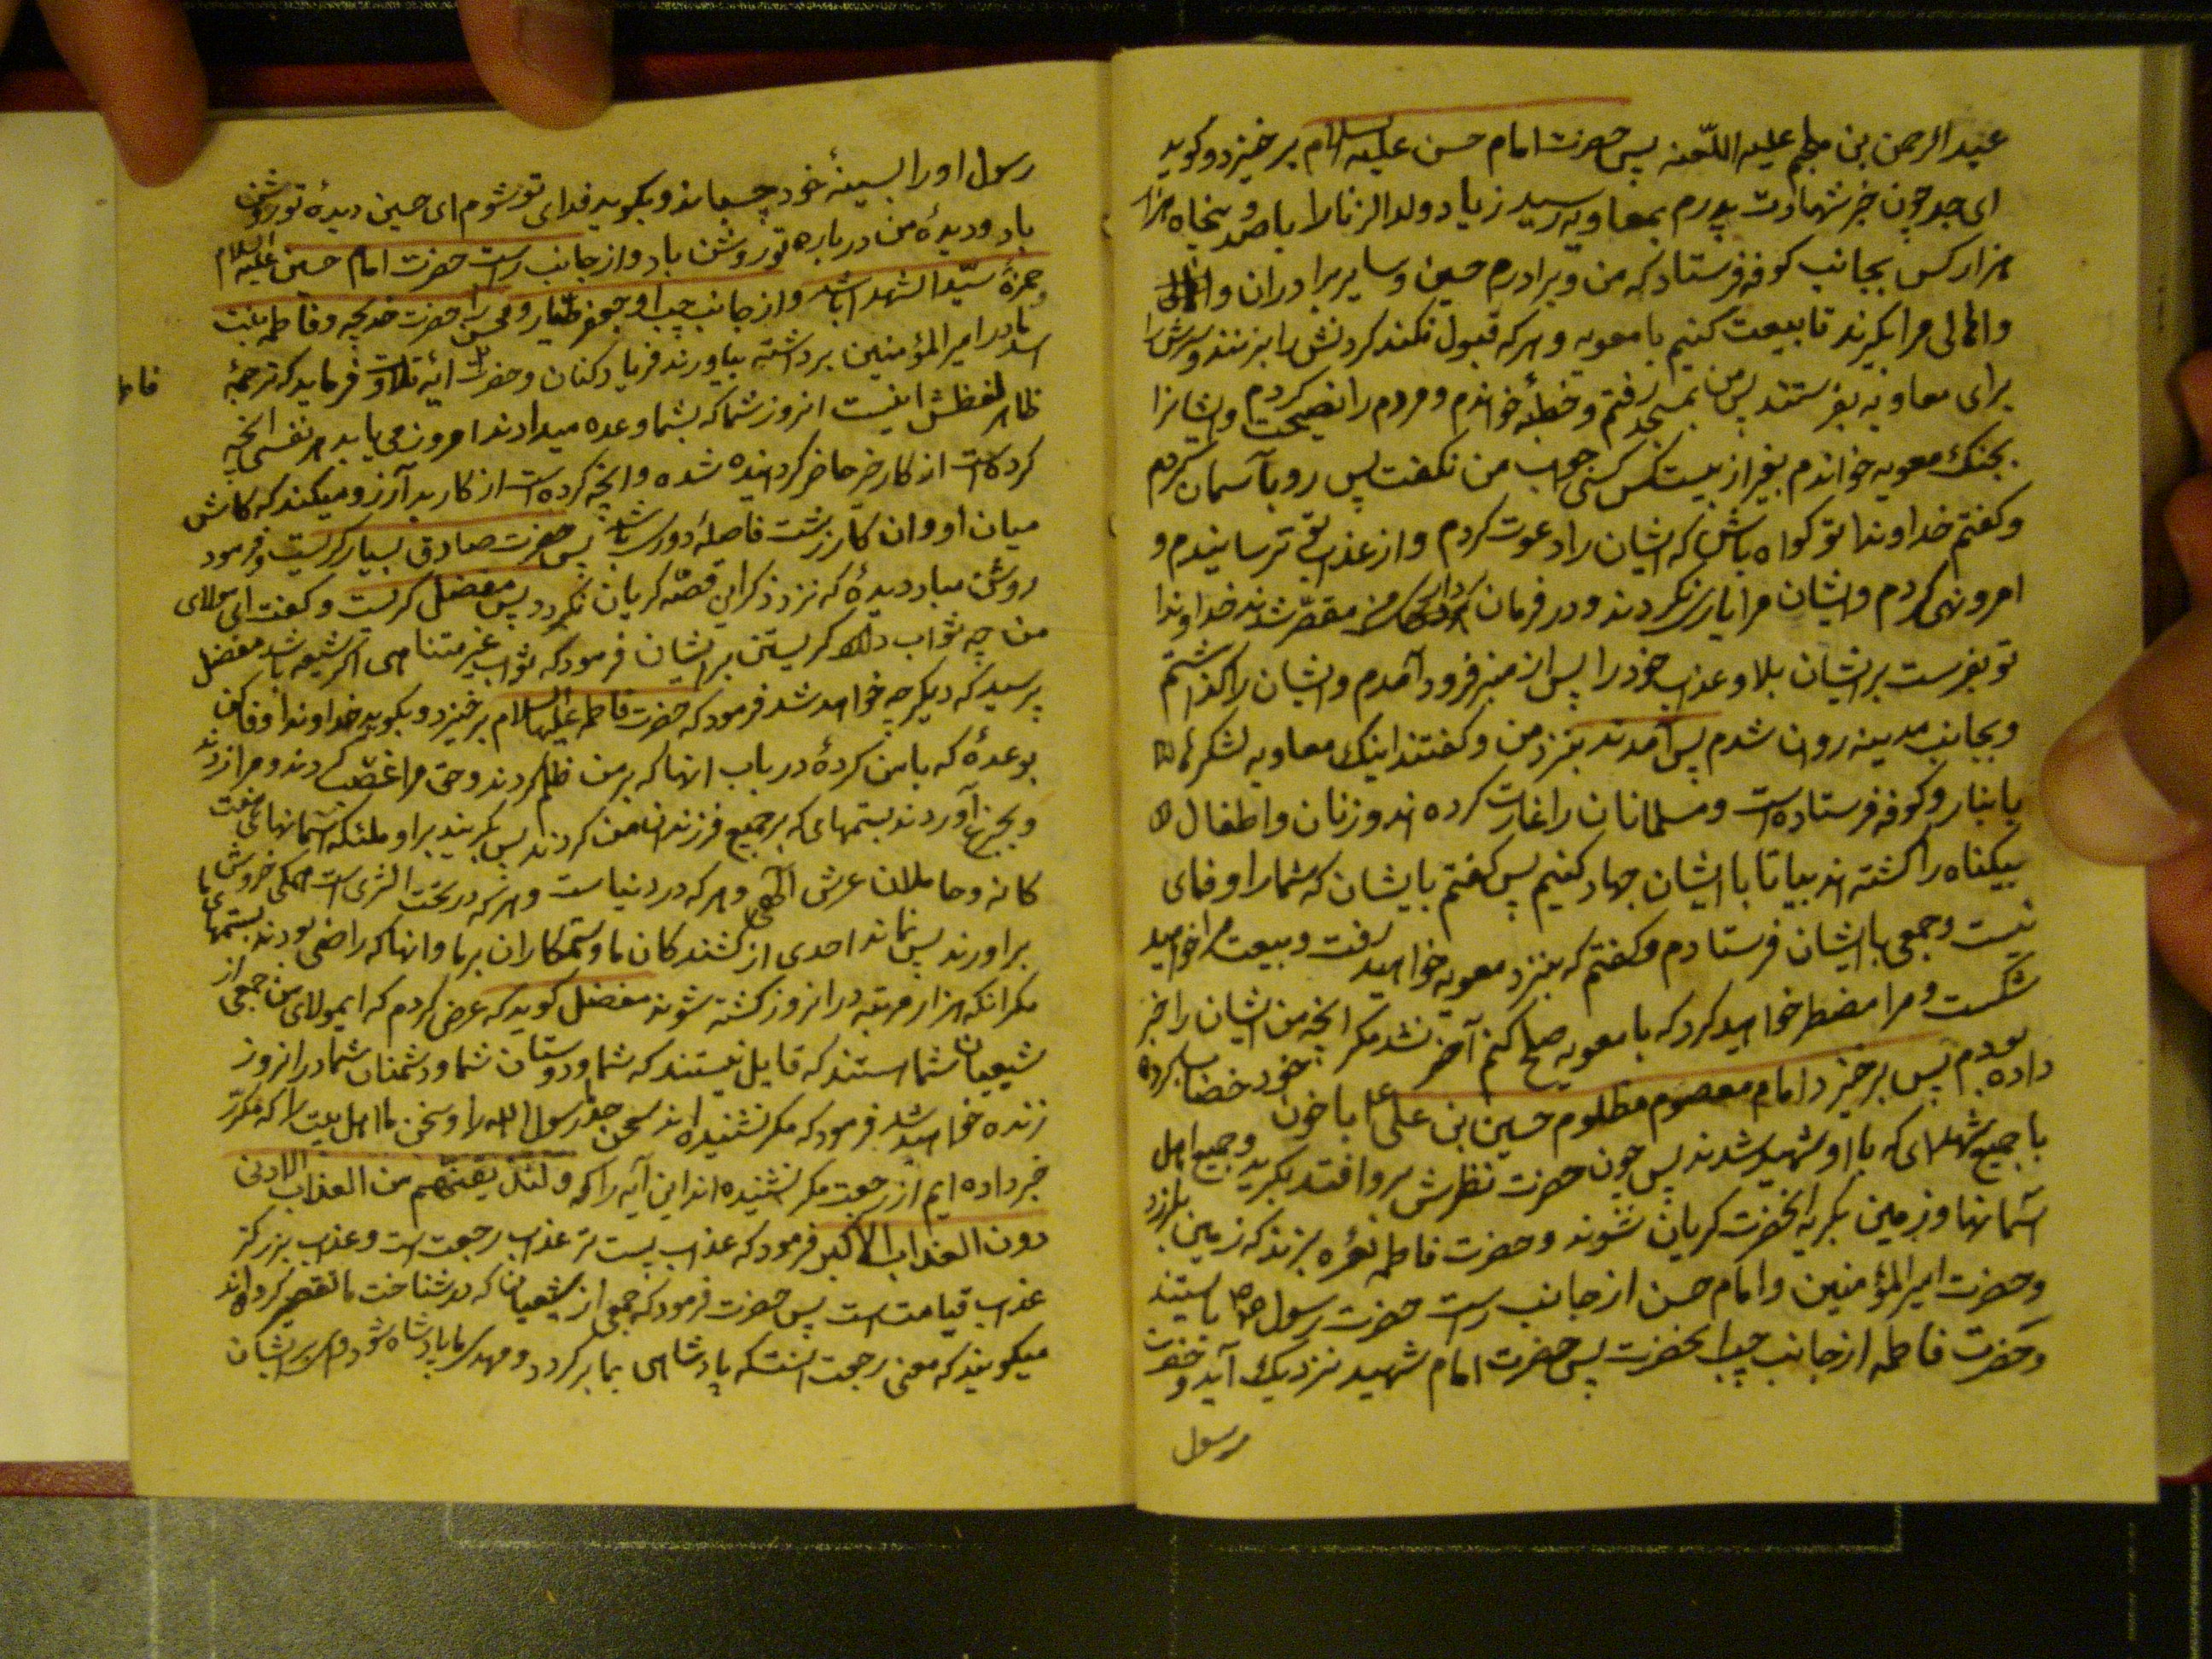 عبدالرحمن بن ملجم علیه اللّعنه پس حضرت امام حسن علیه السلام بر خیزد و کوید
ای جد چون خبر شهادت پدرم بمعاویه رسید زیاد ولدالزنا را با صد و پنجاه هزار
هزار کس بجانب کوفه فرستاد که من و برادرم حسین و سایر برادران و
و اهالی مرا بکیرند تا بیعت کنیم با معویه و هر که قبول نکند کردنش را بزنند و سرش را
برای معاویه بفرستند پس من بمسجد رفتم و خطبهٔ خواندم و مردم را نصیحت کردم و ایشانرا
بجنک معویه خواندم بغیر از بیست کس کسی جواب من نکفت پس رو بآسمان کردم
و کفتم خداوندا تو کواه باش که ایشان را دعوت کردم و از عذاب تو ترسانیدم و
امر و نهی کردم و ایشان مرا یاری نکردند و در فرمان من مقصّر شدند خداوندا
تو بفرست بر ایشان بلا و عذاب خود را پس از منبر فرود آمدم و ایشان را کذاشتم
و بجانب مدینه روان شدم پس آمدند بنزد من و کفتند اینک معاویه لشکرها
بانبار و کوفه فرستاده است و مسلمانان را غارت کرده اند و زنان و اطفال
بیکناه را کشته اند بیا تا با ایشان جهاد کنیم پس کفتم بایشان که شما را وفای
نیست و جمعی با ایشان فرستادم و کفتم که بنزد معویه خواهید رفت و بیعت مرا خواهید
شکست و مرا مضطر خواهید کرد که با معویه صلح کنم آخر نشد مکر انچه من ایشان را خبر
داده بودم پس بر خیزد امام معصوم مظلوم حسین بن علی ع با خون خود خضاب کرده
با جمیع شهدای که با او شهید شدند پس چون حضرت نظرش بر او افتد بکرید و جمیع اهل
آسمانها و زمین بکریه انحضرت کریان شوند و حضرت فاطمه نعره بزند که زمین بلرزد
و حضرت امیرالمؤمنین و امام حسن از جانب راست حضرت رسول ص بایستند
و حضرت فاطمه از جانب چپ انحضرت پس حضرت امام شهید نزدیک آید و حضرت
رسول
رسول او را بسینهٔ خود چسپاند و بکوید فدای تو شوم ای حسین دیدهٔ تو روشن
باد و دیدهٔ من در باره تو روشن باد و از جانب راست حضرت امام حسین علیه السلام
حمزهٔ سیّد الشهدا باشد و از جانب چپ او جعفر طیّار و محسن را حضرت خدیجه و فاطمه بنت
اسد مادر امیر المؤمنین برداشته بیاورند فریاد کنان و حضرت این آیه تلاوت فرماید که ترجمهٔ
ظاهر لفظش اینست انروز شما که بشما وعده میدادند امروز می یابد هر نفسی انچه
کرده است از کار خیر حاضر کردانیده شده و انچه کرده است از کار بد آرزو میکند که کاش
میان او و ان کار زشت فاصلهٔ دوری باشد پس حضرت صادق بسیار کریست و فرمود
روشن مباد دیدهٔ که نزد ذکر این قصّه کریان نکردد پس مفضل کریست و کفت ای مولای
من چه ثواب دارد کریستن بر ایشان فرمود که ثواب غیر متناهی اکر شیعه باشد مفضل
پرسید که دیکر چه خواهد شد فرمود که حضرت فاطمه علیها السلام بر خیزد و بکوید خداوندا وفا کن
بوعدهٔ که با من کردهٔ در باب انها که بر من ظلم کردند و حق مرا غصب کردند و مرا زدند
و بجزع آوردند بستمهای که بر جمیع فرزندان من کردند پس بکریند بر او ملئکه آسمانهای هفت
کانه و حاملان عرش الهی و هر که در دنیاست و هر که در تحت الثری است همکی خروش
براورند پس نماند احدی از کشندکان ما و ستمکاران بر ما و انها که راضی بودند بستمهای ما
مکر انکه هزار مرتبه در انروز کشته شوند مفضل کوید که عرض کردم که ایمولای من جمعی از
شیعیان شما هستند که قایل نیستند که شما و دوستان شما و دشمنان شما در انروز
زنده خواهید شد فرمود که مکر نشنیده اند سخن جد ما رسول الله را و سخن ما اهل بیت را که مکرّر
خبر داده ایم از رجعت مکر نشنیده اند این آیه را که و لنذیقنّهم من العذاب الادنی
دون العذاب الاکبر فرمود که عذاب پست تر عذاب رجعت است و عذاب بزرکتر
عذاب قیامت است پس حضرت فرمود که جمعی از شیعیان که در شناخت ما تقصیر کرده اند
میکویند که معنی رجعت انستکه پادشاهی بما بر کردد و مهدی ما پادشاه شود وای بر ایشان